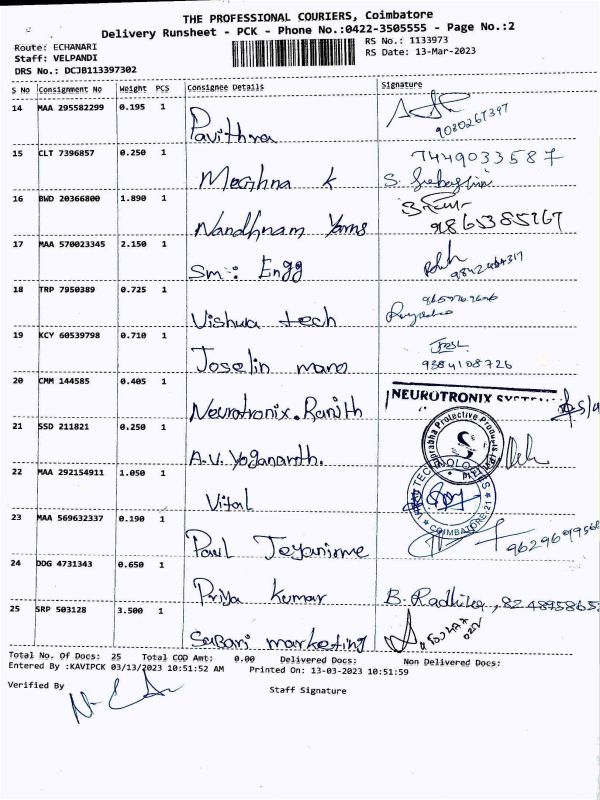 THE PROFESSIONAL COURIERS, Coimbatore
Delivery Runsheet - PCK - Phone No.:0422-3505555 - Page No.:2
Route: ECHANARI RS No.: 1133973
Staff: VELPANDI RS Date: 13-Mar-2023
DRS No.: DCJB113397302
S No Consignment No Weight PCS Consignee Details Signature
14 MAA 295582299 0.195 1 Pavithra 9080267397
15 CLT 7396857 0.250 1 Meghna K 7449033587
16 BWD 20366800 1.890 1 Nandhnam Yarns
17 MAA 570023345 2.150 1 Engg
18 TRP 7950389 0.725 1 Vishwa tech
19 KCY 60539798 0.710 1 Joselin mano 9384108726
20 CMM 144585 0.405 1 Neurotronix. Ranith NEUROTRONIX
21 SSD 211821 0.250 1 A.V. Yogananth. Protective Products
22 MAA 292154911 1.050 1 Vital COIMBATORE-21
23 MAA 569632337 0.190 1 Paul
24 DDG 4731343 0.650 1 Priya Kumar B. Radhika,
25 SRP 503128 3.500 1 Sabari marketing
Total No. Of Docs: 25 Total COD Amt: 0.00 Delivered Docs: Non Delivered Docs:
Entered By :KAVIPCK 03/13/2023 10:51:52 AM Printed On: 13-03-2023 10:51:59
Verified By Staff Signature